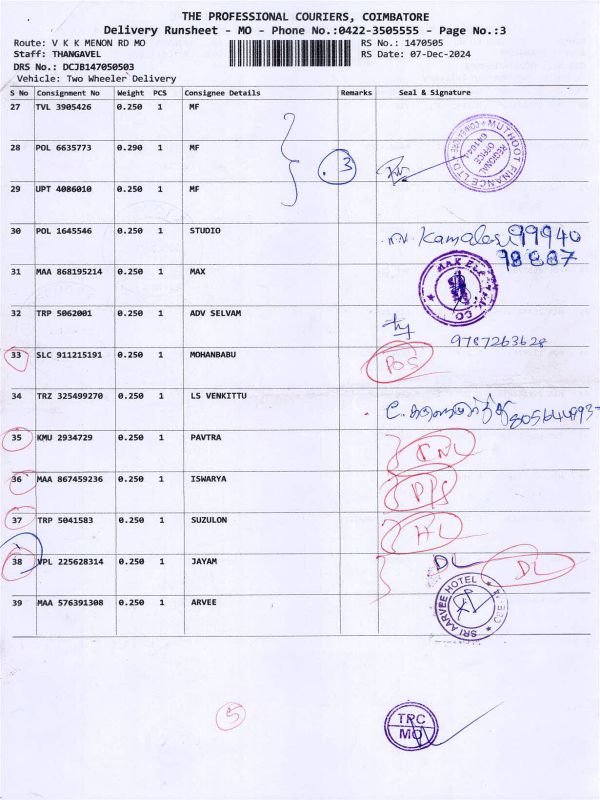 THE PROFESSIONAL COURIERS, COIMBATORE
Delivery Runsheet - MO - Phone No.:0422-3505555 - Page No.:3
Route: V K K MENON RD MO RS No.: 1470505
Staff: THANGAVEL RS Date: 07-Dec-2024
DRS No.: DCJB147050503
Vehicle: Two Wheeler Delivery
S No Consignment No Weight PCS Consignee Details Remarks Seal & Signature
27 TVL 3905426 0.250 1 MF
28 POL 6635773 0.290 1 MF
3
MUTHOOT FINANCE LTD. REGIONAL OFFICE
29 UPT 4086010 0.250 1 MF
30 POL 1645546 0.250 1 STUDIO
Kamales 99940
78887
31 MAA 868195214 0.250 1 MAX
32 TRP 5062001 0.250 1 ADV SELVAM
9787263628
33 SLC 911215191 0.250 1 MOHANBABU
34 TRZ 325499270 0.250 1 LS VENKITTU
35 KMU 2934729 0.250 1 PAVTRA
36 MAA 867459236 0.250 1 ISWARYA
37 TRP 5041583 0.250 1 SUZULON
HL
38 VPL 225628314 0.250 1 JAYAM DL DL
39 MAA 576391308 0.250 1 ARVEE
SRI AARVEE HOTEL
5
TPC
MO